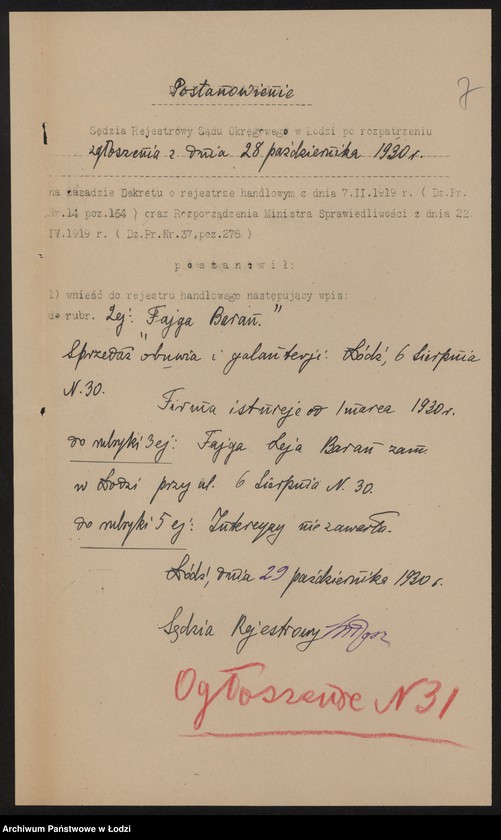 Postanowienie
7
Sędzia Rejestrowy Sądu Okręgowego w Łodzi po rozpatrzeniu
zgłoszenia z dnia 28 października 1930 r.
na zasadzie Dekretu o rejestrze handlowym z dnia 7.II.1919 r. ( Dz.Pr.
Nr.14 poz.164 ) oraz Rozporządzenia Ministra Sprawiedliwości z dnia 22.
IV.1919 r. ( Dz.Pr.Nr.37,poz.278 )
p o s t a n o w i ł:
1) wnieść do rejestru handlowego następujący wpis:
do rubr. 2ej: "Fajga Baran."
Sprzedaż obuwia i galanterji. Łódź, 6 Sierpnia
N. 30.
Firma istnieje od 1 marca 1930 r.
do rubryki 3ej: Fajga Leja Baran zam.
w Łodzi przy ul. 6 Sierpnia N. 30.
do rubryki 5ej: Intercyzy nie zawarła.
Łódź, dnia 29 października 1930 r.
Sędzia Rejestrowy
Ogłoszenie N 31
Archiwum Państwowe w Łodzi